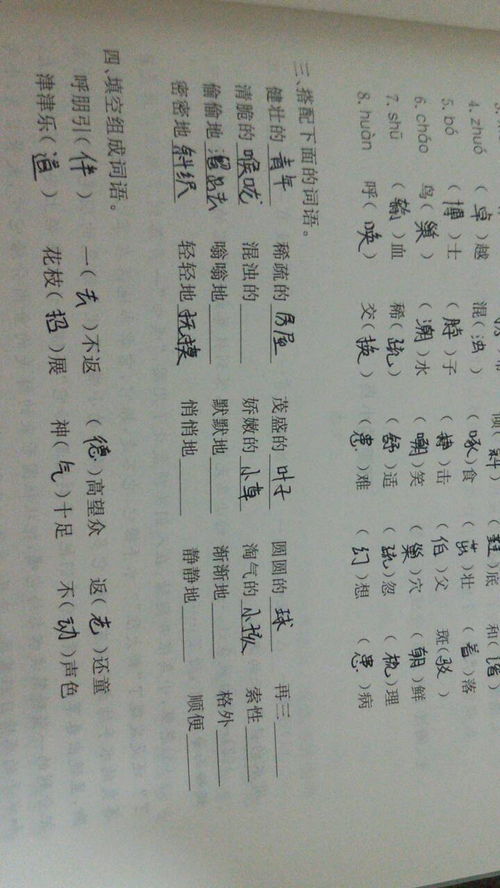 底 和(谐)
4. zhuó (卓)越 混(浊) (啄)食 (茁)壮 (着)落
5. bó (博)士 (脖)子 (搏)击 (伯)父 斑(驳)
6. cháo 鸟(巢) (潮)水 (嘲)笑 (巢)穴 (朝)鲜
7. shū (输)血 稀(疏) (舒)适 (疏)忽 (梳)理
8. huàn 呼(唤) 交(换) (患)难 (幻)想 (患)病
三、搭配下面的词语。
健壮的 青年 稀疏的 房屋 茂盛的 叶子 圆圆的 球 再三
清脆的 喉咙 混浊的 娇嫩的 小草 淘气的 小孩 索性
偷偷地 嗡嗡地 默默地 渐渐地 格外
密密地 斜织 轻轻地 抚摸 悄悄地 静静地 顺便
四、填空组成词语。
呼朋引(伴) 一(去)不返 (德)高望众 返(老)还童
津津乐(道) 花枝(招)展 神(气)十足 不(动)声色